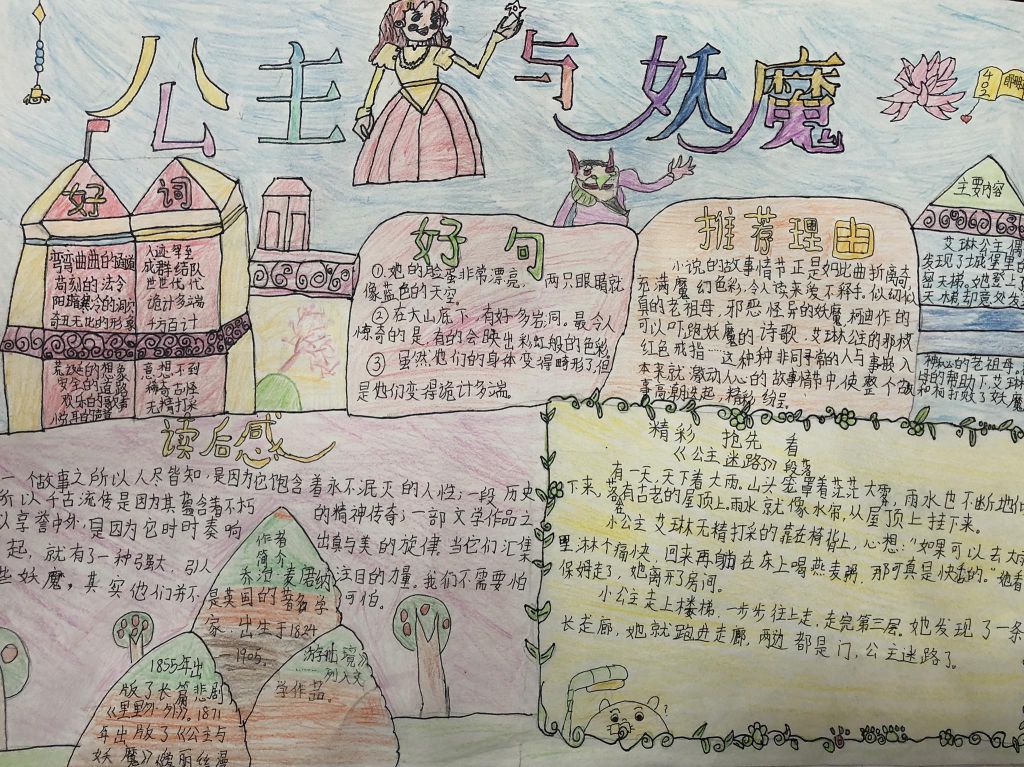 公主与妖魔
402
好词
弯弯曲曲的隧道
苛刻的法令
阳暗寒冷的洞穴
奇丑无比的形象
荒诞的想象
安全的道路
欢乐的歌声
悦耳的
人迹罕至
成群结队
世世代代
诡计多端
千方百计
意想不到
稀奇古怪
无精打采
好句
①她的脸蛋非常漂亮，两只眼睛就
像蓝色的天空。
②在大山底下，有好多岩洞。最令人
惊奇的是，有的会映出彩虹般的色彩
③虽然他们的身体变得畸形了，但
是他们变得诡计多端。
推荐理由
小说的故事情节正是如此曲折离奇
充满魔幻色彩，令人读来爱不释手。似幻似
真的老祖母，邪恶怪异的妖魔，柯迪作的
可以吓跑妖魔的诗歌，艾琳公主的那枚
红色戒指……这种种非同寻常的人与事嵌入
本来就激动人心的故事情节中，使整个故
事高潮迭起，精彩纷呈。
主要内容
艾琳公主偶
发现了城堡里的
密天梯。她登上了
天梯却意外发
神秘的老祖母。
母的帮助下，艾琳
和柯打败了妖魔
读后感
一个故事之所以人尽皆知，是因为它饱含着永不泯灭的人性；一段历史
所以千古流传是因为其蕴含着不朽的精神传奇；一部文学作品之
以享誉中外，是因为它时时奏响出真与美的旋律。当它们汇集
起，就有了一种强大、引人注目的力量。我们不需要怕
些妖魔，其实他们并不可怕。
作者
简介
乔治·麦唐纳
是英国的著名学
家，出生于1824
—1905。
1855年出
版了长篇悲剧
《里里外外》。1871
年出版了《公主与
妖魔》
学作品。
精彩抢先看
《公主迷路》段落
有一天，天下着大雨，山头笼罩着茫茫大雾，雨水也不断地
下来，落在古老的屋顶上，雨水就像水帘，从屋顶上挂下来。
小公主艾琳无精打采的靠在椅背上，心想：“如果可以去大雨
里淋个痛快，回来再躺在床上喝燕麦粥，那可真是快活的。”她看
保姆走了，她离开了房间。
小公主走上楼梯，一步步往上走，走完第三层。她发现了一条
长走廊，她就跑进走廊，两边都是门，公主迷路了。